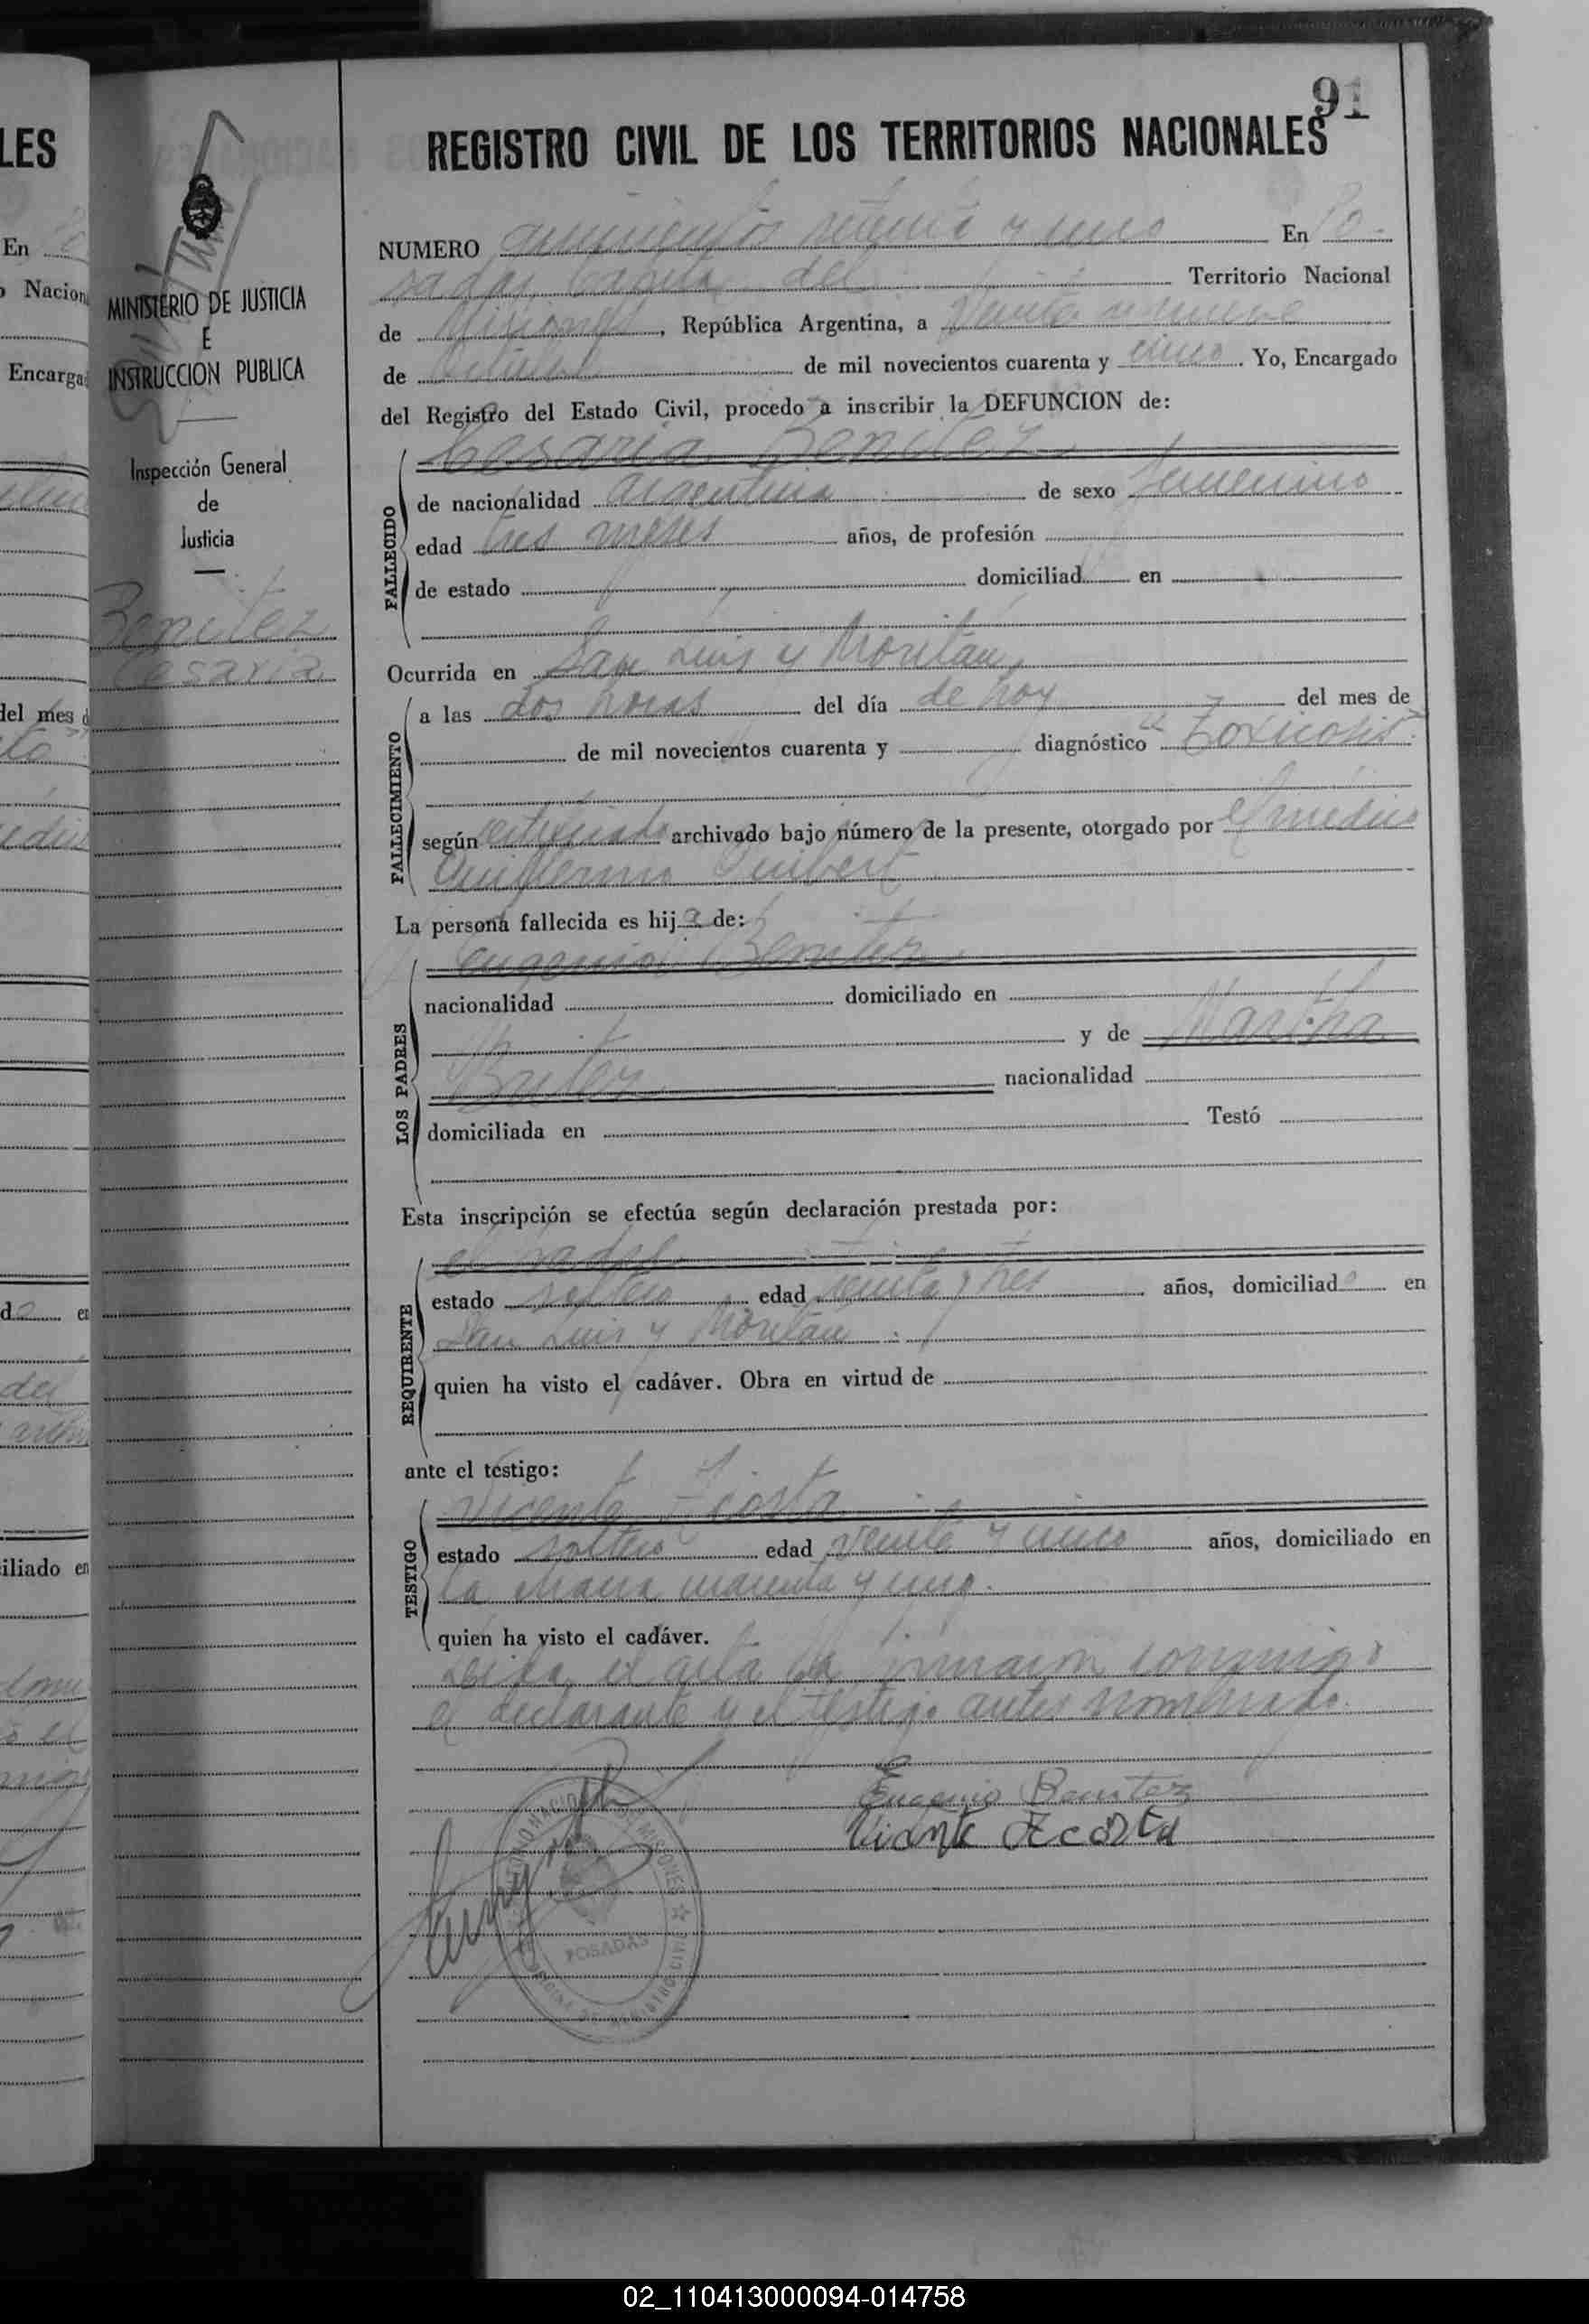 91
REGISTRO CIVIL DE LOS TERRITORIOS NACIONALES
NUMERO quinientos setenta y uno En Po-
sadas Capital del Territorio Nacional
de Misiones, República Argentina, a veinte y nueve
de Octubre de mil novecientos cuarenta y cinco. Yo, Encargado
del Registro del Estado Civil, procedo a inscribir la DEFUNCION de:
Cesaria Benitez
FALLECIDO
de nacionalidad argentina de sexo femenino
edad tres meses años, de profesión
de estado domiciliad en
Ocurrida en San Luis y
FALLECIMIENTO
a las dos horas del día de hoy del mes de
de mil novecientos cuarenta y diagnóstico "Toxicosis"
según certificado archivado bajo número de la presente, otorgado por el médico
Guillermo
La persona fallecida es hija de:
LOS PADRES
Eugenio Benitez
nacionalidad domiciliado en
y de Martina
nacionalidad
domiciliada en Testó
Esta inscripción se efectúa según declaración prestada por:
REQUIRENTE
el padre
estado soltero edad y tres años, domiciliado en
San Luis y
quien ha visto el cadáver. Obra en virtud de
ante el testigo:
TESTIGO
Vicente Acosta
estado soltero edad veinte y cinco años, domiciliado en
La cuarenta y uno.
quien ha visto el cadáver.
Leida el acta la firmaron conmigo
el declarante y el testigo antes nombrado.
Eugenio Benitez
Vicente Acosta
POSADAS
MINISTERIO DE JUSTICIA
E
INSTRUCCION PUBLICA
Inspección General
de
Justicia
Benitez
Cesaria
LES
En
Nacion
Encarga
del mes d
en
iliado en
02_110413000094-014758